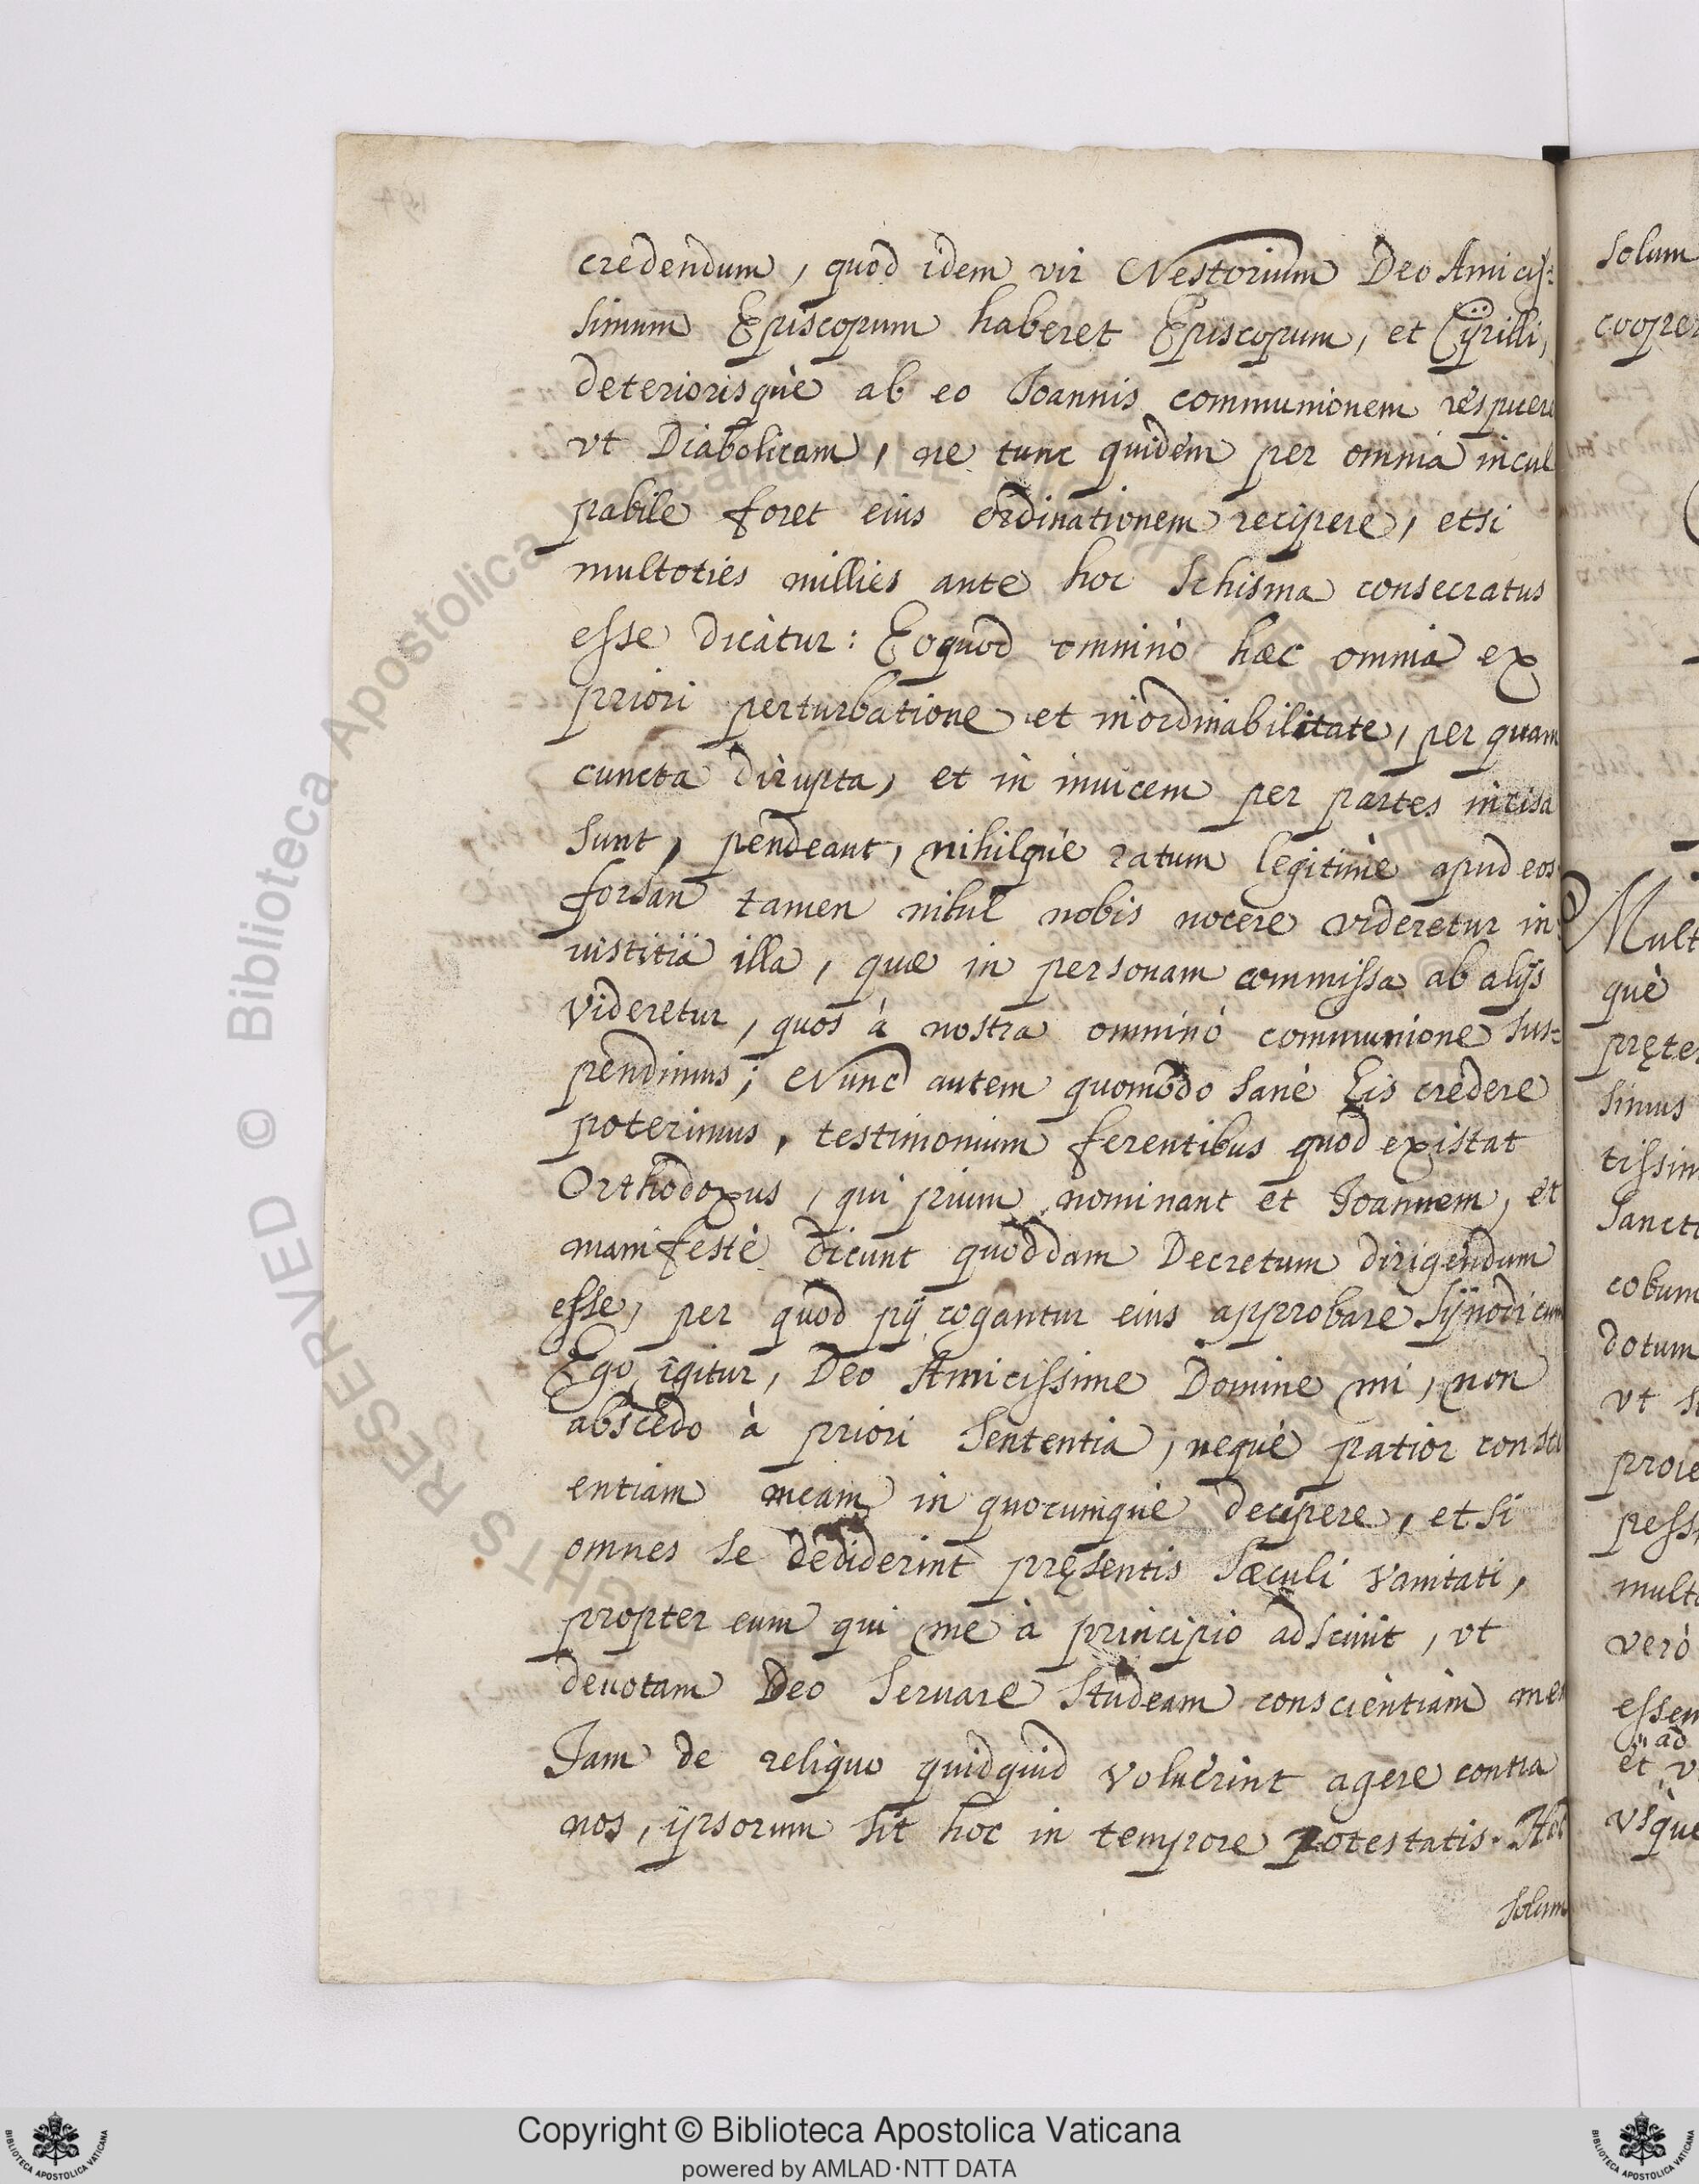 credendum, quod idem vir Nestorium Deo Amicis=
simum Episcopum haberet Episcopum, et Cÿrilli,
deteriorisquè ab eo Joannis communionem respuere
vt Diabolicam, ne tunc quidem per omnia incul
pabile foret eius ordinationem recipere, etsi
multoties millies ante hoc Schisma consecratus
esse dicatur: Eoquod omninò hæc omnia ex
priori perturbatione et inordinabilitate, per quam
cuncta dirupta, et in inuicem per partes incisa
sunt, pendeant, nihilquè ratum legitimè apud eos
forsan tamen nihil nobis nocere videretur in
iustitia illa, quæ in personam commissa ab alijs
videretur, quos à nostra omninò communione sus=
pendimus; Nunc autem quomodo sanè Eis credere
poterimus, testimonium ferentibus quod existat
Orthodoxus, qui pium nominant et Joannem, et
manifestè dicunt quoddam Decretum dirigendum
esse, per quod pij cogantur eius approbare Sÿnodicum
Ego igitur, Deo Amicissime Domine mi, non
abscedo à priori sententia, nequè patior consci
entiam meam in quocumquè decipere, et si
omnes se dediderint pręsentis sæculi vanitati,
propter eum qui me à principio adsciuit, vt
deuotam Deo seruare studeam conscientiam
Jam de reliquo quidquid voluerint agere contra
nos, ipsorum sit hoc in tempore potestatis.
solum
solum
cooper
Mult
què
pręte
simus
tissim
sancti
cobum
dotum
vt
proie
pess
mult
verò
essem
ad
et v
vsque
Copyright © Biblioteca Apostolica Vaticana
powered by AMLAD·NTT DATA
© Biblioteca Apostolica Vaticana